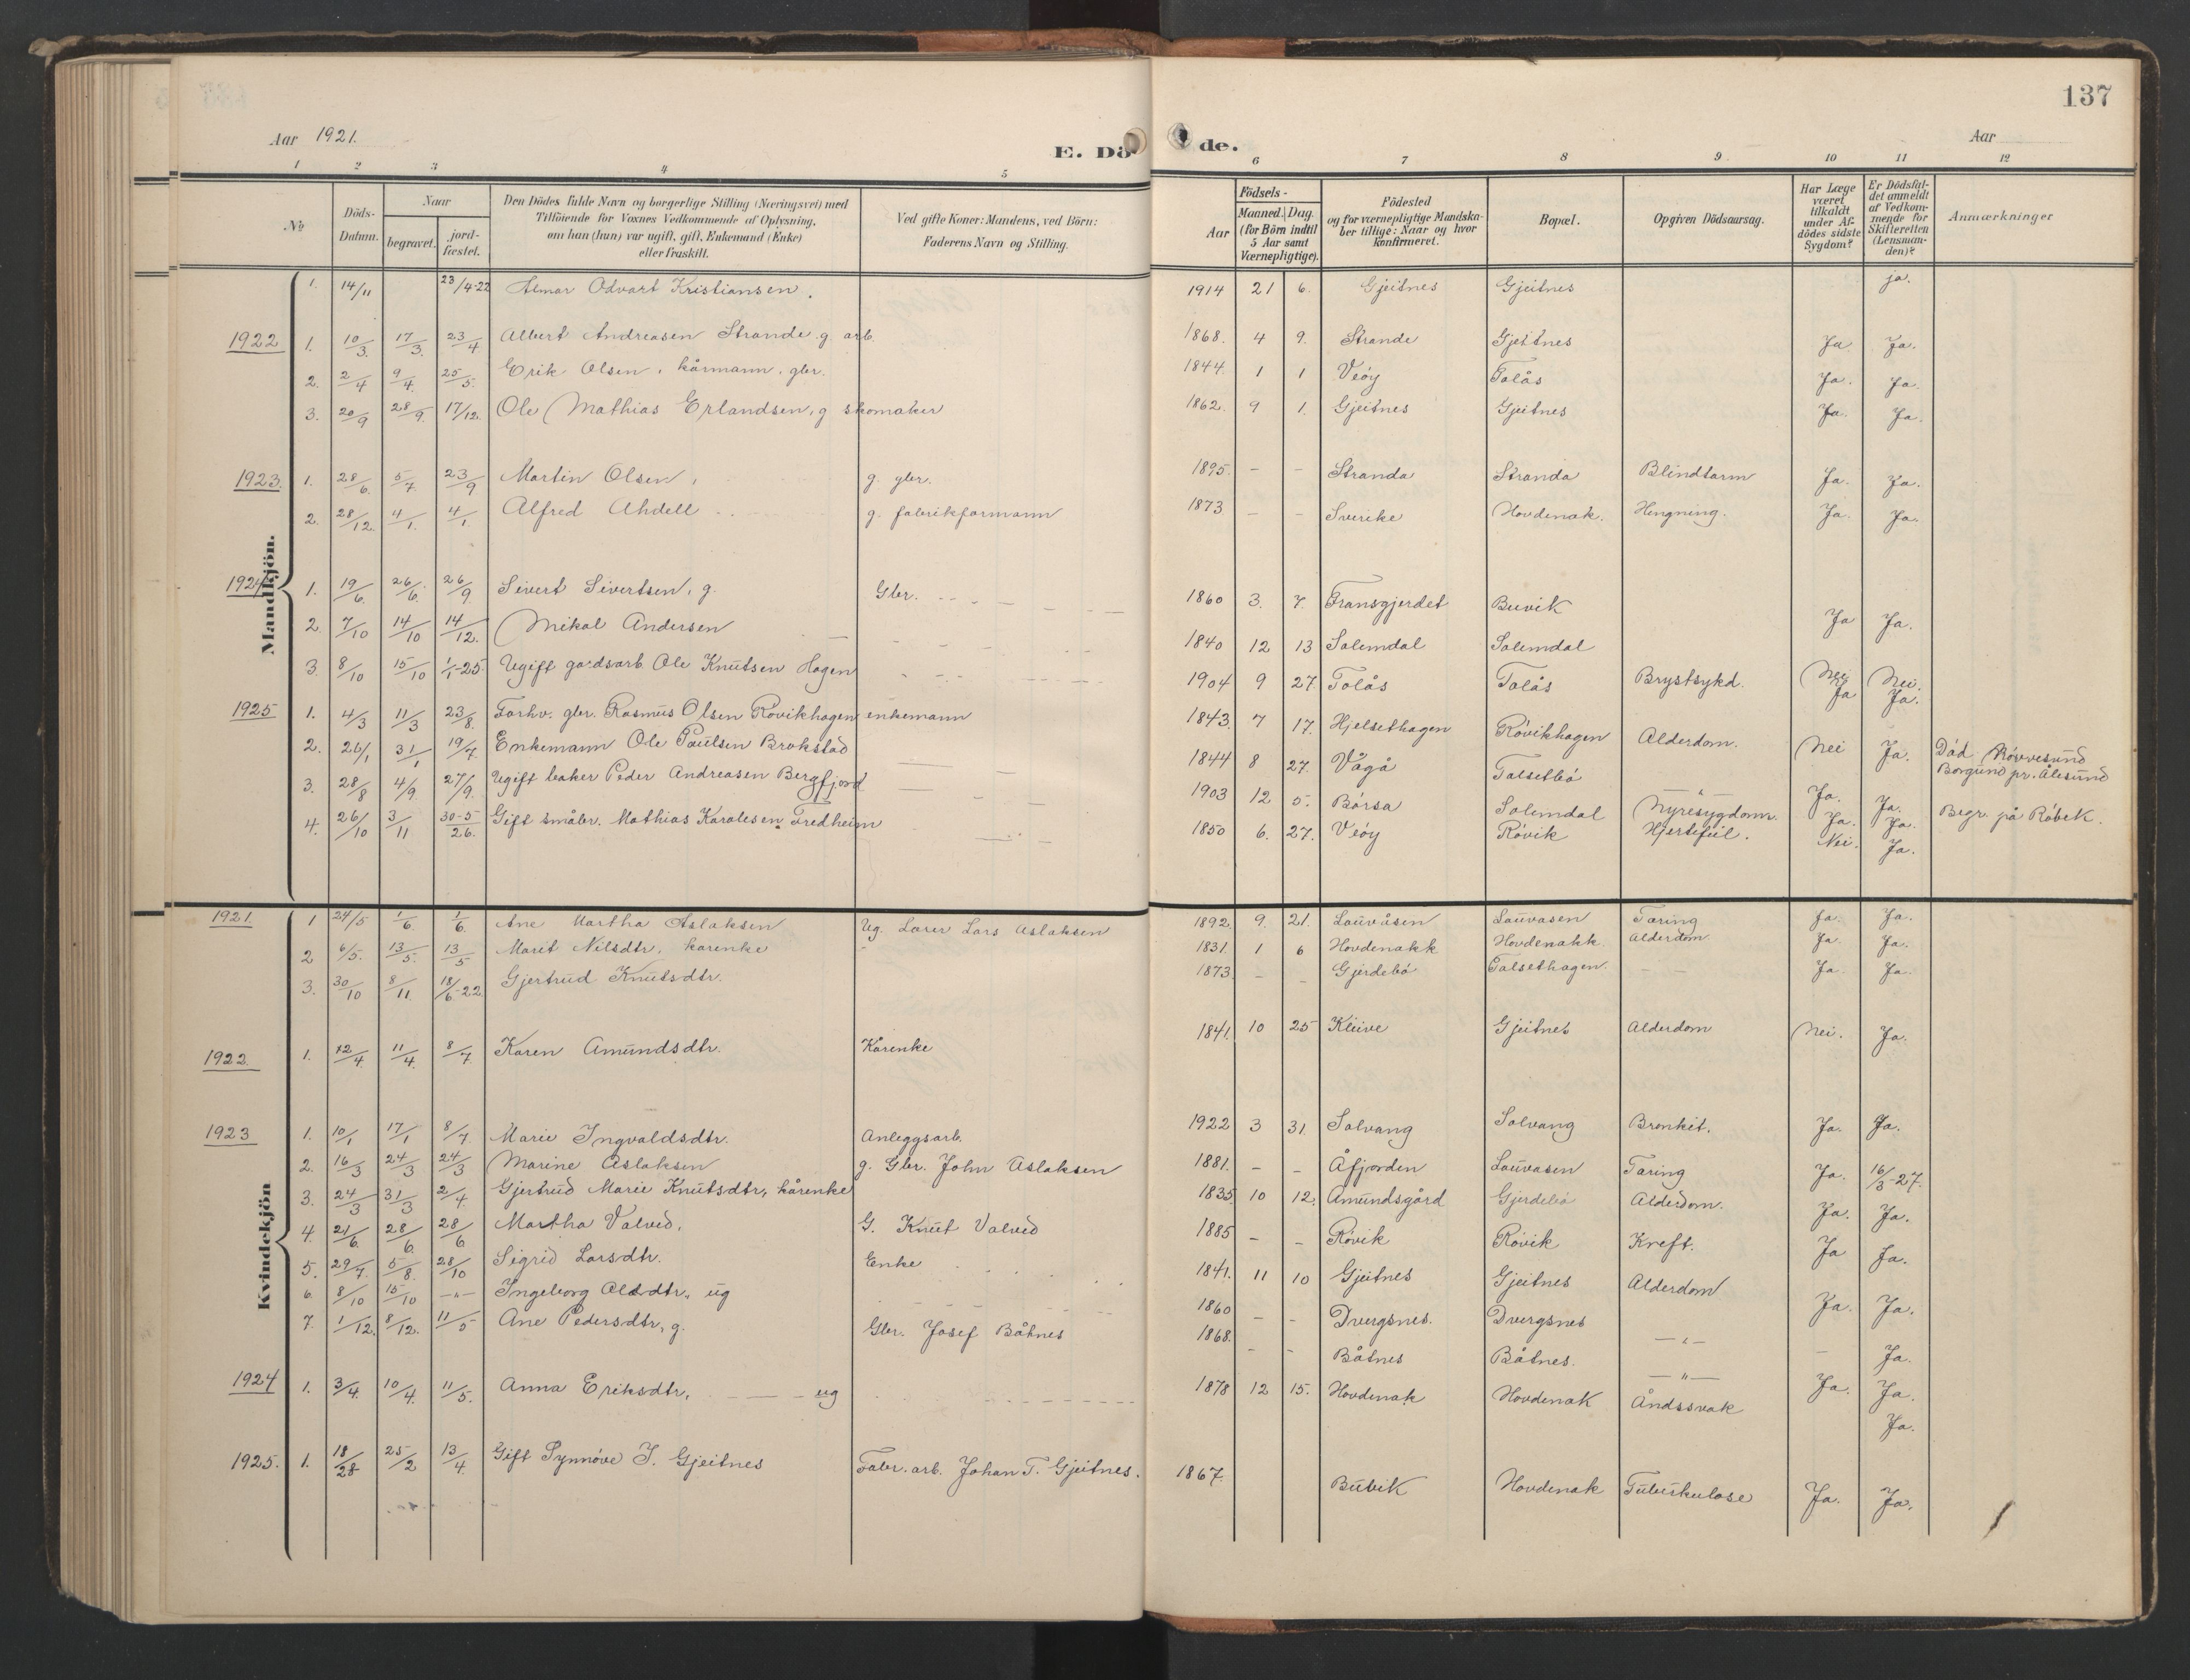 137
Aar 1921.
Aar
E. Döde.
1 2 3 4 5 6 7 8 9 10 11 12
No
Döds-Datum.
Naar
begravet.
jord-fæstet.
Den Dödes fulde Navn og borgerlige Stilling (Næringsvei) med
Tilföiende for Voxnes Vedkommende af Oplysning,
om han (hun) var ugift, gift, Enkemand (Enke)
eller fraskilt.
Ved gifte Koner: Mandens, ved Börn:
Faderens Navn og Stilling.
Födsels-
Aar
Maaned. Dag.
(for Börn indtil
5 Aar samt
Værnepligtige).
Födested
og for værnepligtige Mandska-
ber tillige: Naar og hvor
konfirmeret.
Bopæl.
Opgiven Dödsaarsag.
Har Læge
været
tilkaldt
under Af-
dödes sidste
Sygdom?
Er Dödsfal-
det anmeldt
af Vedkom-
mende for
Skifteretten
(Lensman-
den)?
Anmærkninger
Mandkjön.
1. 14/11 23/4-22 Almar Odvart Kristiansen. 1914 21 6. Gjeitnes Gjeitnes ja.
1922 1. 10/3. 17/3. 23/4 Albert Andreasen Strande. g arb. 1868. 4 9. Strande Gjeitnes Ja. Ja.
2. 2/4 9/4. 25/5. Erik Olsen, kårmann, gbr. 1844. 1 1 Veöy Talås Ja. Ja.
3. 20/9 28/9. 17/12. Ole Mathias Erlandsen, g skomaker 1862. 9 1. Gjeitnes Gjeitnes Ja. Ja.
1923. 1. 28/6. 5/7. 23/9 Martin Olsen, g. gbr. 1895. - - Stranda Stranda Blindtarm Ja. Ja.
2. 28/12. 4/1. 4/1 Alfred Ahdell g. fabrikformann 1873 - - Sverike Hovdenak. Hengning. Ja. Ja.
1924 1. 19/6. 26/6. 26/9. Sivert Sivertsen, g. Gbr. 1860 3. 7. Fransgjerdet Buvik Ja Ja.
2. 7/10 14/10 14/12. Mikal Andersen 1840 12 13 Solemdal Solemdal
3. 8/10 15/10 1/1-25 Ugift gardsarb Ole Knutsen Hagen 1904 9 27. Tolås Talås Brystsykd. Nei Nei.
1925 1. 4/3 11/3 23/8. Forhv. gbr. Rasmus Olsen Rövikhagen enkemann 1843. 7 17. Hjelsethagen Rövikhagen Alderdom. Ja Ja.
2. 26/1 31/1 19/7. Enkemann Ole Paulsen Brokstad 1844 8 27. Vågå Talsetbö Nei Ja. Död Rövvesund Borgund pr. Ålesund
3. 28/8 4/9. 27/9. Ugift baker Peder Andreasen Bergfjord 1903 12 5. Börsa Solemdal Nyresygdom. Ja. Ja. Ja. Ja.
4. 26/10 3/11 30-5/26. Gift småbr. Mathias Karolesen Fredheim 1850 6. 27. Veöy Rövik Hjertefeil. Nei. Ja. Begr. på Röbek.
Kvindekjön
1921. 1 24/5 1/6 1/6. Ane Martha Aslaksen Ug. Lærer Lars Aslaksen 1892. 9. 21. Lauvåsen Lauvasen Tæring Ja. Ja.
2 6/5. 13/5. 13/5 Marit Nilsdtr, kårenke 1831. 1 6 Hovdenakk Hovdenakk. Alderdom Ja. Ja.
3. 30/10 8/11 18/6-22. Gjertrud Knutsdtr. 1873. - - Gjerdebö Talsethagen. - - Ja. Ja.
1922. 1. 12/4. 11/4. 8/7. Karen Amundsdtr. Kårenke 1841. 10 25 Kleive Gjeitnes Alderdom Nei. Ja.
1923 1. 10/1 17/1 8/7. Marie Ingvaldsdtr. Anleggsarb. 1922 3 31. Solvang Solvang Bronkit. Ja. Ja.
2. 16/3 24/3 24/3 Marine Aslaksen g. Gbr. John Aslaksen 1881. - - Åfjorden Lauvasen Tæring Ja. 16/3-27.
3. 24/3 31/3 2/4. Gjertrud Marie Knutsdtr, kårenke 1835 10 12. Amundsgård Gjerdebö Alderdom. Ja. Ja.
4. 21/6. 28/6. 28/6 Martha Valved. G. Knut Valved 1885 - - Rövik Rövik Kreft. Ja Ja.
5. 29/7. 5/8. 28/10 Sigrid Larsdtr. Enke 1841. 11 10 Gjeitnes Gjeitnes Alderdom Ja. Ja.
6. 8/10 15/10 -"- Ingeborg Olsdtr. ug 1860 - - Dvergsnes. Dvergsnes -"- - Ja.
7. 1/12. 8/12. 11/5 Ane Pedersdtr, g. Gbr. Josef Båtnes 1868. - - Båtnes Båtnes. -"- Ja. Ja.
1924 1. 3/4. 10/4. 11/5. Anna Eriksdtr. ug 1878 12 15. Hovdenak Hovdenak Åndssvak Ja.
1925. 1. 18/28 25/2 13/4. Gift Synnöve J. Gjeitnes Fabr. arb. Johan T. Gjeitnes. 1867. Bubik Hovdenak Tuberkulose Ja. Ja.